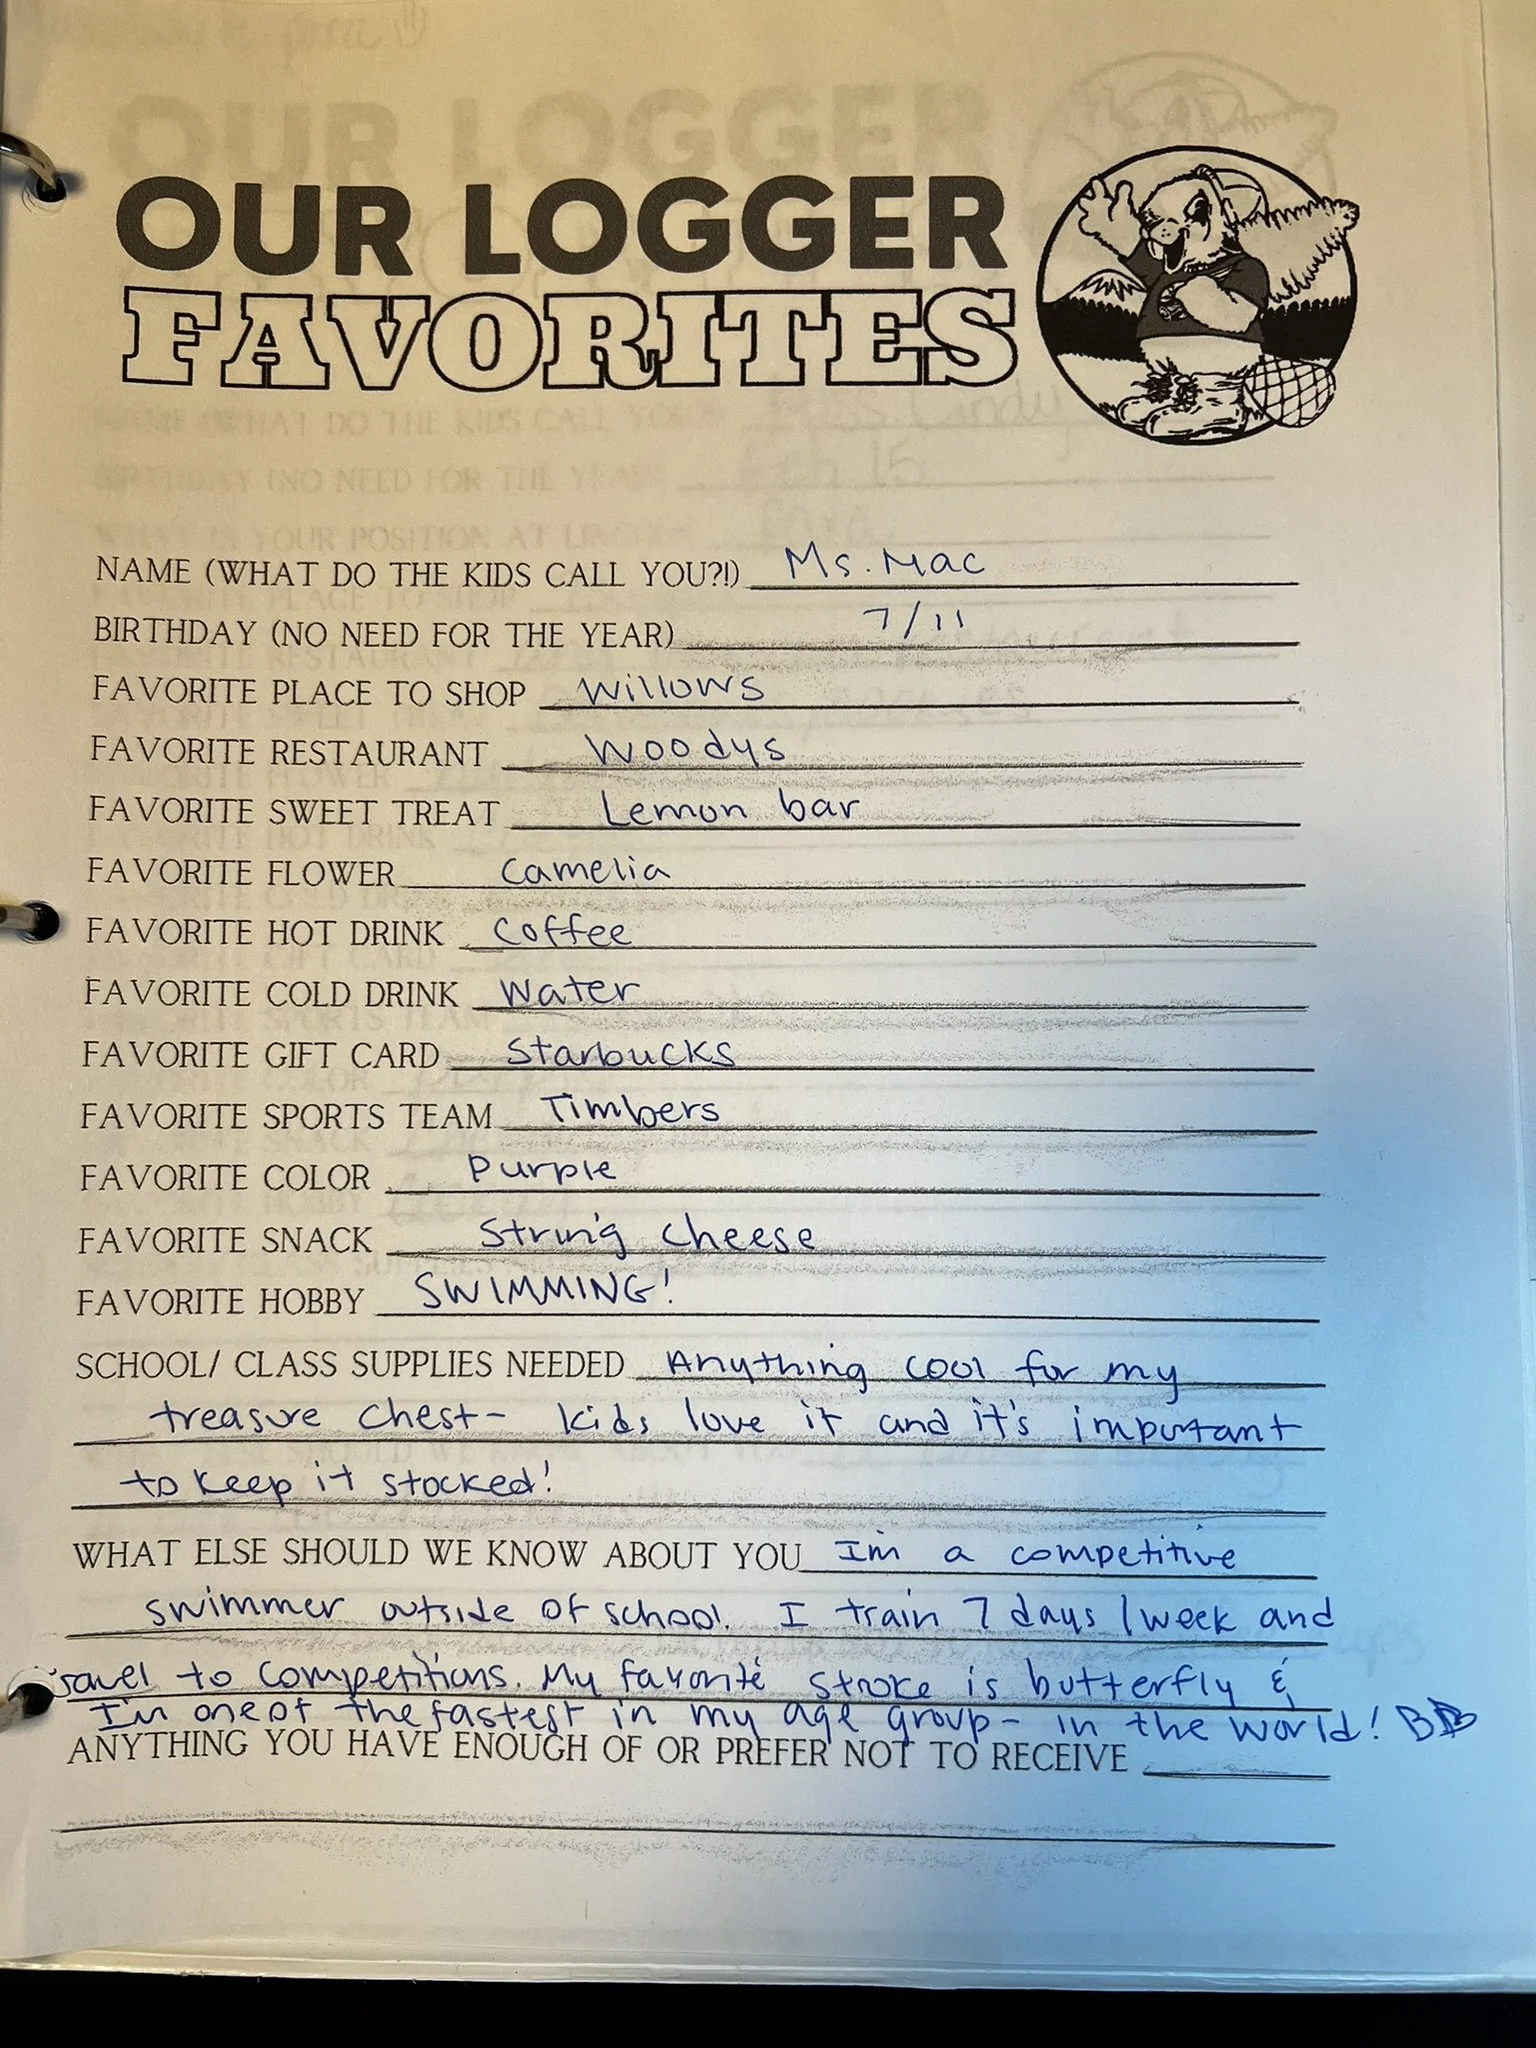 OUR LOGGER
FAVORITES
NAME (WHAT DO THE KIDS CALL YOU?!) Ms. Mac
BIRTHDAY (NO NEED FOR THE YEAR) 7/11
FAVORITE PLACE TO SHOP Willows
FAVORITE RESTAURANT Woodys
FAVORITE SWEET TREAT Lemon bar
FAVORITE FLOWER Camelia
FAVORITE HOT DRINK Coffee
FAVORITE COLD DRINK Water
FAVORITE GIFT CARD Starbucks
FAVORITE SPORTS TEAM Timbers
FAVORITE COLOR Purple
FAVORITE SNACK String cheese
FAVORITE HOBBY SWIMMING!
SCHOOL/ CLASS SUPPLIES NEEDED Anything cool for my
treasure chest- kids love it and it's important
to keep it stocked!
WHAT ELSE SHOULD WE KNOW ABOUT YOU I'm a competitive
swimmer outside of school. I train 7 days/week and
travel to competitions. My favorite stroke is butterfly &
I'm one of the fastest in my age group- in the world!
ANYTHING YOU HAVE ENOUGH OF OR PREFER NOT TO RECEIVE